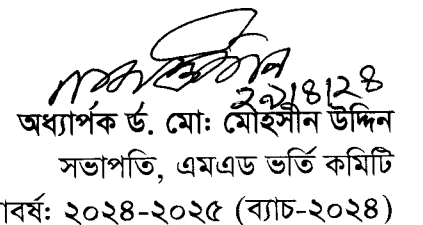 ২৯/৪/২৪
অধ্যার্পক র্ড. মো: মোহসীন উদ্দিন
সভাপতি, এমএড ভর্তি কমিটি
াবর্ষ: ২০২৪-২০২৫ (ব্যাচ-২০২৪)